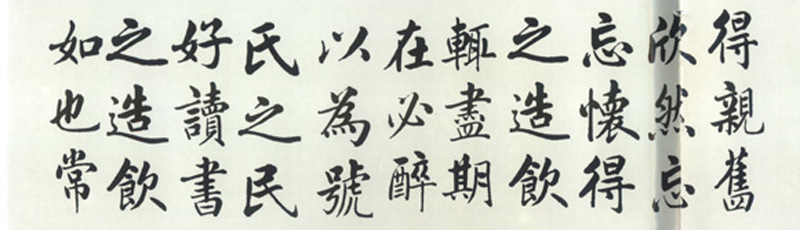 得親舊
欣然忘
忘懷得
之造飲
輒盡期
在必醉
以為號
氏之民
好讀書
之造飲
如也常